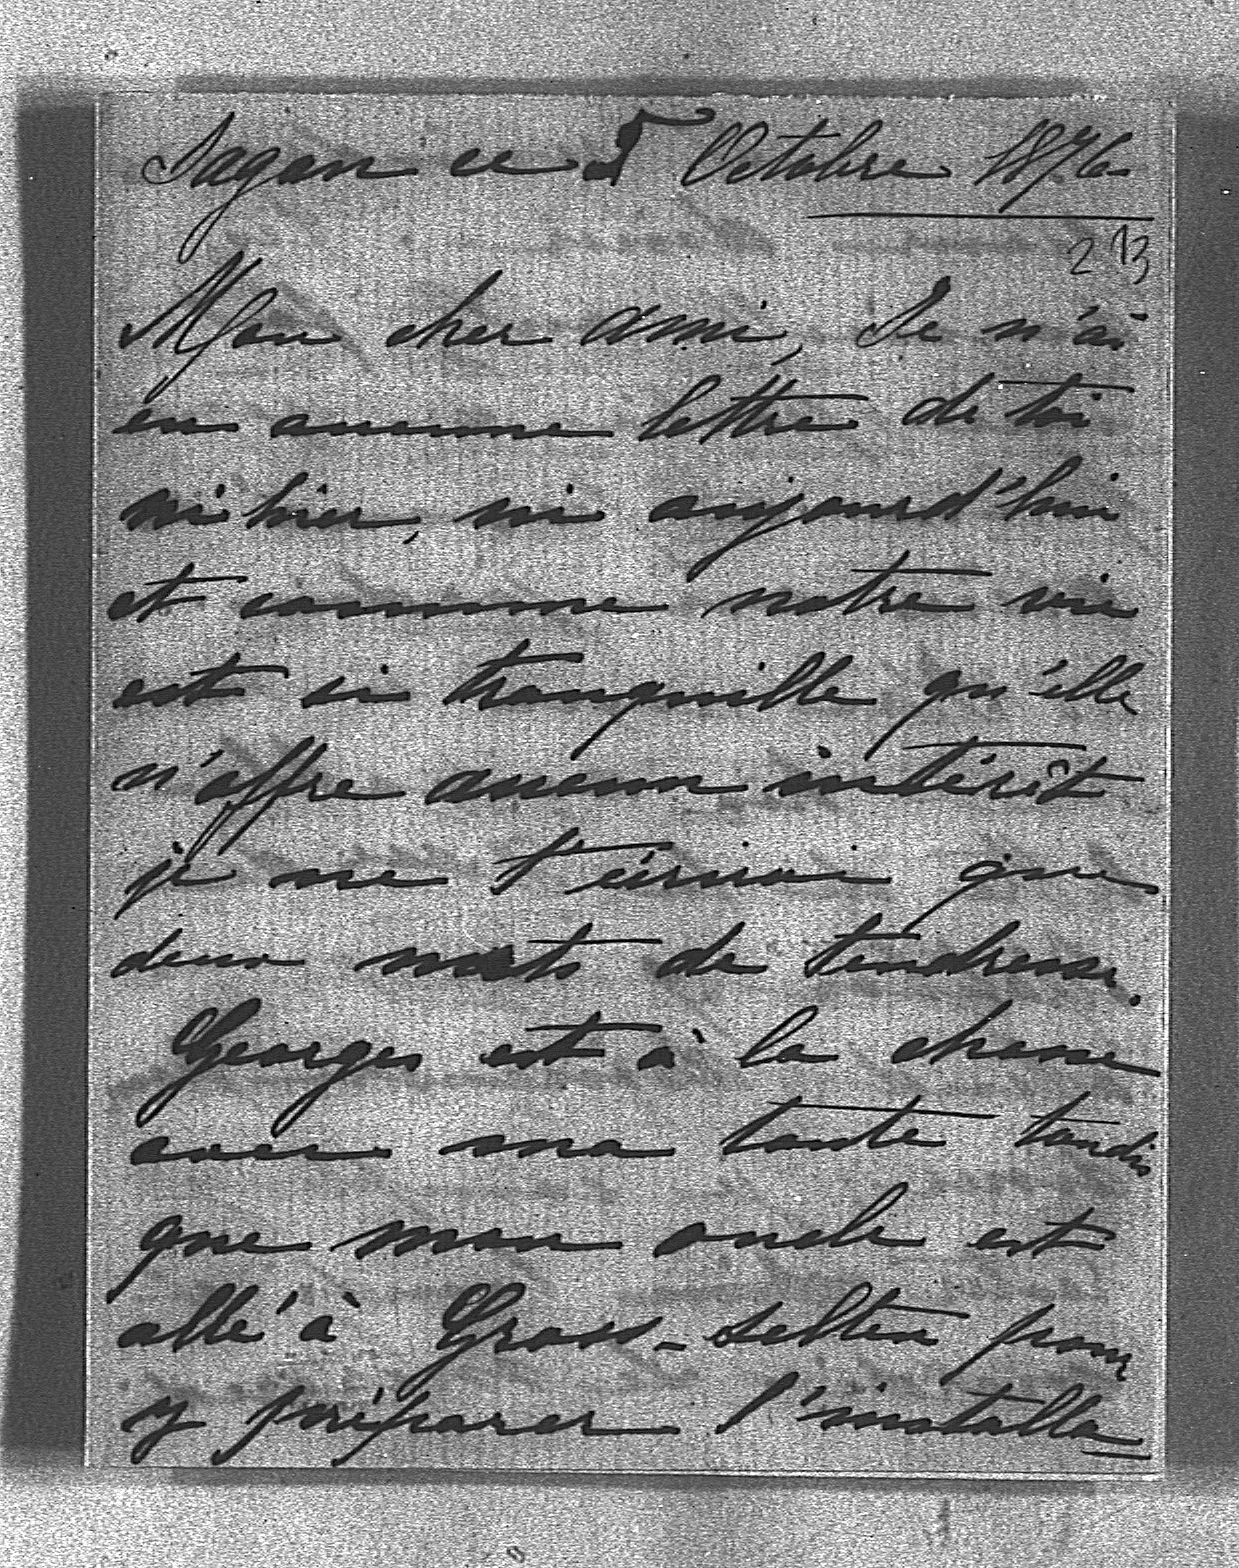 Sagan ce 5 Octobre 1876
213
Mon cher ami, Je n'ai
eu aucune lettre de toi
ni hier, ni aujourd'hui
et comme notre vie
est si tranquille qu'elle
n'offre aucun intérêt
je ne t'envoie que
deux mots de tendresse.
Georges est à la chasse
avec ma tante tandis
que mon oncle est
allé à Gross-selten pour
y préparer l'installa